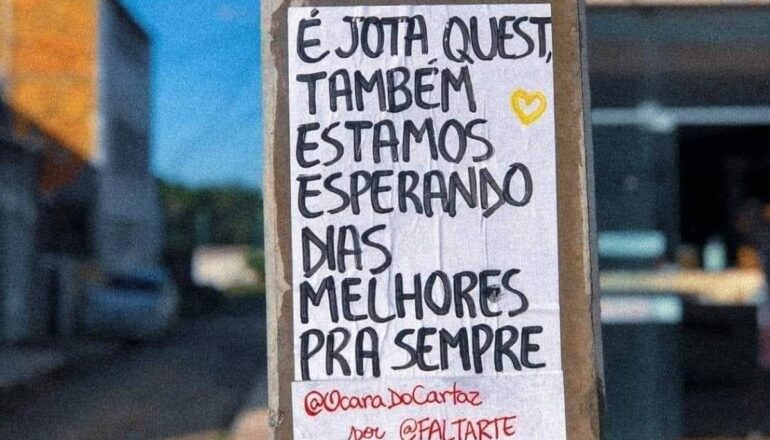 É JOTA QUEST,
TAMBÉM
ESTAMOS
ESPERANDO
DIAS
MELHORES
PRA SEMPRE
@OcaraDoCartaz
por @FALTARTE